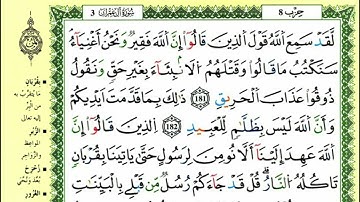 حزب 8
سُورَةُ آلِ عِمْرَان 3
لَّقَدْ سَمِعَ اللَّهُ قَوْلَ الَّذِينَ قَالُوا إِنَّ اللَّهَ فَقِيرٌ وَنَحْنُ أَغْنِيَاءُ
سَنَكْتُبُ مَا قَالُوا وَقَتْلَهُمُ الْأَنبِيَاءَ بِغَيْرِ حَقٍّ وَنَقُولُ
ذُوقُوا عَذَابَ الْحَرِيقِ (181) ذَلِكَ بِمَا قَدَّمَتْ أَيْدِيكُمْ
وَأَنَّ اللَّهَ لَيْسَ بِظَلَّامٍ لِّلْعَبِيدِ (182) الَّذِينَ قَالُوا إِنَّ
اللَّهَ عَهِدَ إِلَيْنَا أَلَّا نُومِنَ لِرَسُولٍ حَتَّى يَاتِيَنَا بِقُرْبَانٍ
تَاكُلُهُ النَّارُ قُلْ قَدْ جَاءَكُمْ رُسُلٌ مِّن قَبْلِي بِالْبَيِّنَاتِ
بِقُرْبَانٍ
مَا يُتَقَرَّبُ بِهِ
من البِرِّ
إليه تعالى
الزُّبُرِ
المواعظ
والزَّواجر
زُحْزِحَ
بُعِّدَ ونُحِّيَ
الغُرُورِ